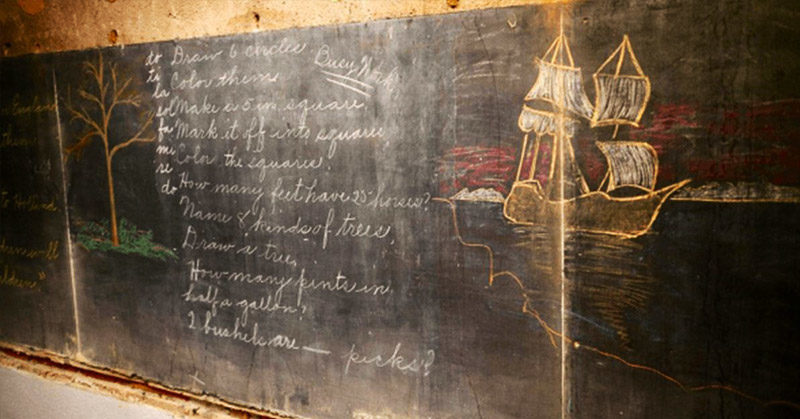 to Holland
do Draw 6 circles. Busy Work
ti Color them
la
sol Make a 5 in. square.
fa Mark it off into squares
mi Color the squares.
re
do How many feet have 25 horses?
Name 8 kinds of trees.
Draw a tree.
How many pints in
half a gallon?
2 bushels are — picks?